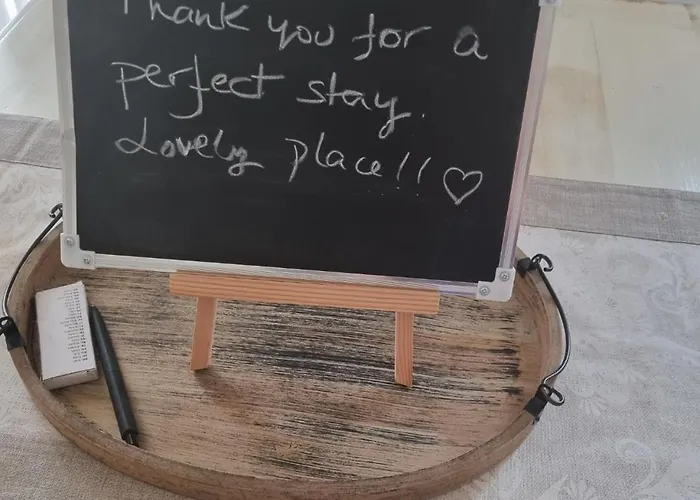 Thank you for a
perfect stay.
Lovely place!! ♡